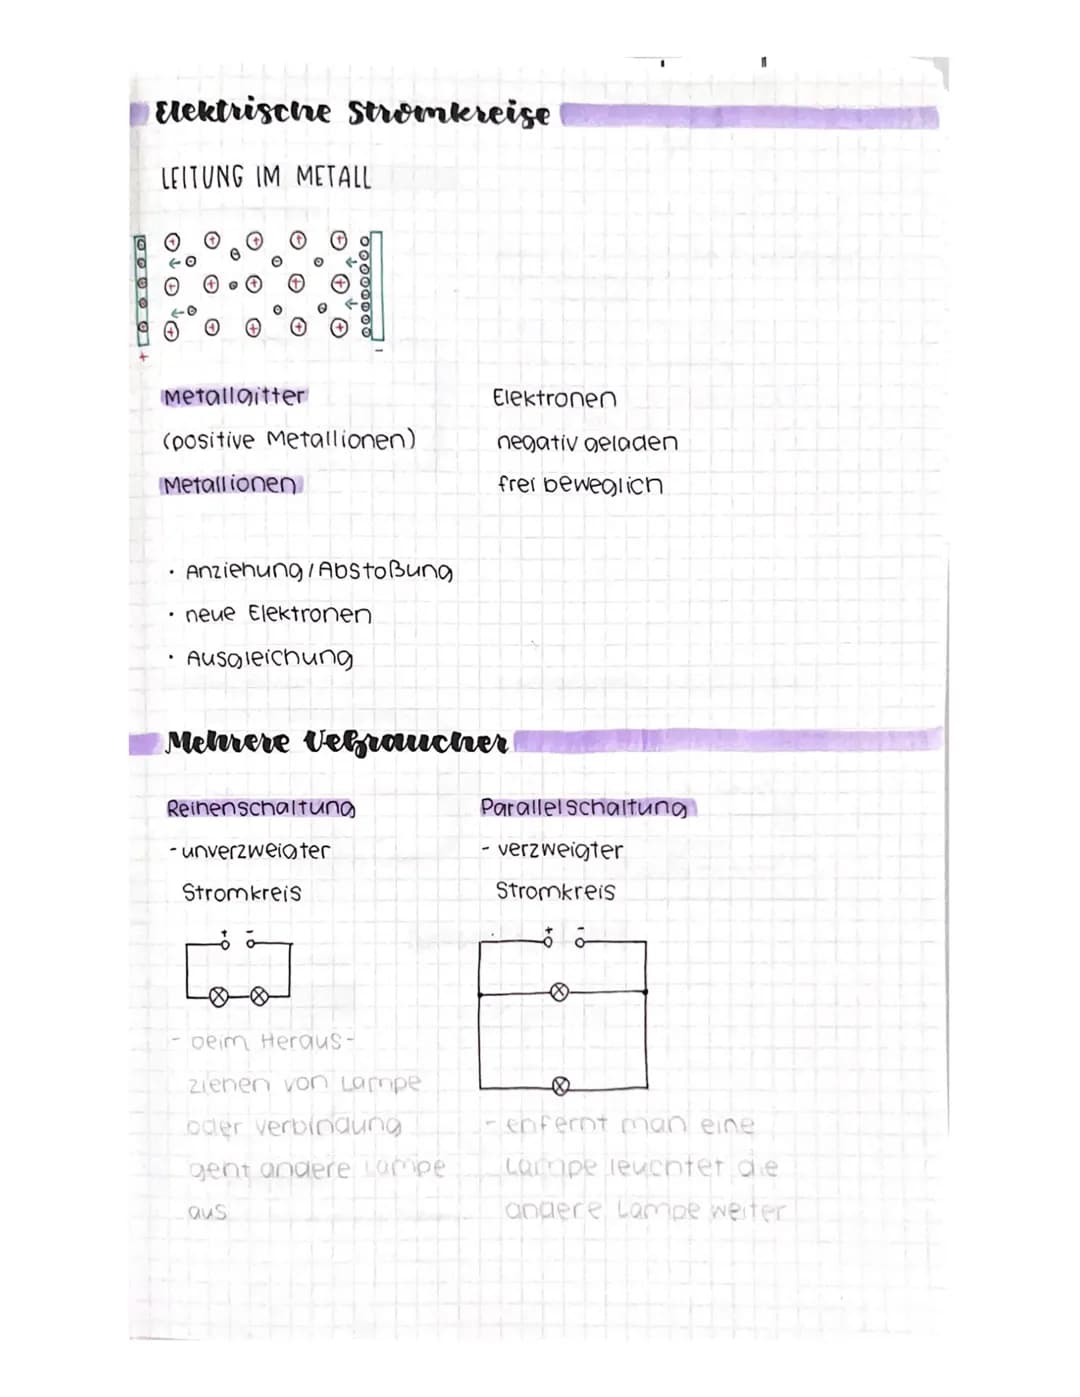 Elektrische Stromkreise
LEITUNG IM METALL
+
-
Metallgitter
(positive Metallionen)
Metallionen
Elektronen
negativ geladen
frei beweglich
· Anziehung / Abstoßung
· neue Elektronen
· Ausgleichung
Mehrere Vebraucher
Reihenschaltung
- unverzweigter
Stromkreis
+ -
- beim Heraus-
ziehen von Lampe
oder verbindung
geht andere Lampe
aus
Parallelschaltung
- verzweigter
Stromkreis
+ -
- enfernt man eine
Lampe leuchtet die
andere Lampe weiter